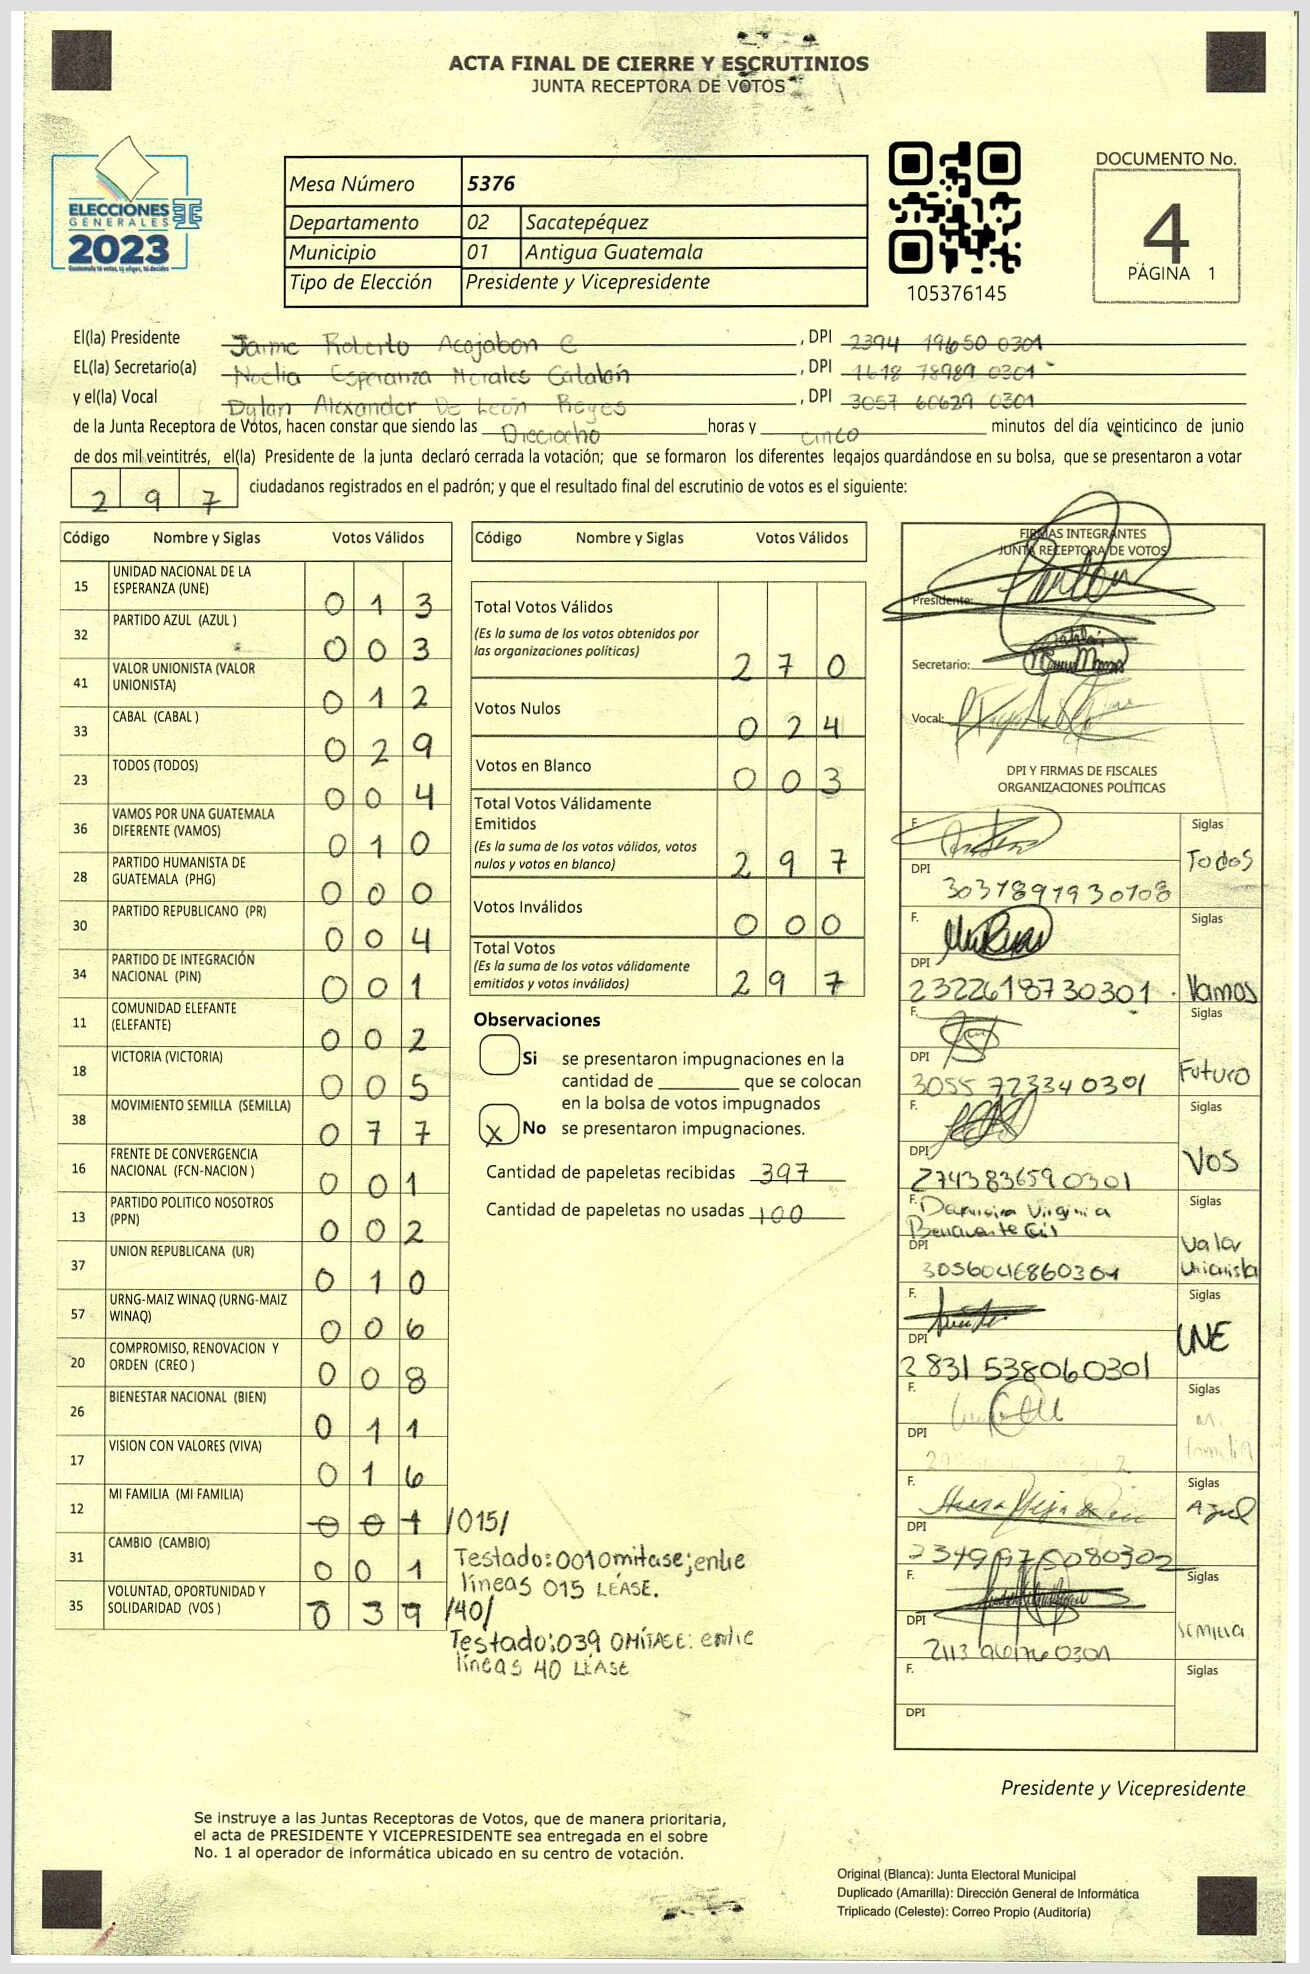 ACTA FINAL DE CIERRE Y ESCRUTINIOS
JUNTA RECEPTORA DE VOTOS
ELECCIONES
GENERALES
2023
Mesa Número 5376
Departamento 02 Sacatepéquez
Municipio 01 Antigua Guatemala
Tipo de Elección Presidente y Vicepresidente
105376145
DOCUMENTO No.
4
PÁGINA 1
El(la) Presidente Jaime Roberto Acajabon C , DPI 2394 19650 0301
EL(la) Secretario(a) Noelia Esperanza Morales Catalán , DPI 1618 78989 0301
y el(la) Vocal Dylan Alexander De León Reyes , DPI 3057 60629 0301
de la Junta Receptora de Votos, hacen constar que siendo las Dieciocho horas y cinco minutos del día veinticinco de junio
de dos mil veintitrés, el(la) Presidente de la junta declaró cerrada la votación; que se formaron los diferentes legajos guardándose en su bolsa, que se presentaron a votar
297 ciudadanos registrados en el padrón; y que el resultado final del escrutinio de votos es el siguiente:
Código Nombre y Siglas Votos Válidos
15 UNIDAD NACIONAL DE LA
ESPERANZA (UNE) 0 1 3
32 PARTIDO AZUL (AZUL ) 0 0 3
41 VALOR UNIONISTA (VALOR
UNIONISTA) 0 1 2
33 CABAL (CABAL ) 0 2 9
23 TODOS (TODOS) 0 0 4
36 VAMOS POR UNA GUATEMALA
DIFERENTE (VAMOS) 0 1 0
28 PARTIDO HUMANISTA DE
GUATEMALA (PHG) 0 0 0
30 PARTIDO REPUBLICANO (PR) 0 0 4
34 PARTIDO DE INTEGRACIÓN
NACIONAL (PIN) 0 0 1
11 COMUNIDAD ELEFANTE
(ELEFANTE) 0 0 2
18 VICTORIA (VICTORIA) 0 0 5
38 MOVIMIENTO SEMILLA (SEMILLA) 0 7 7
16 FRENTE DE CONVERGENCIA
NACIONAL (FCN-NACION ) 0 0 1
13 PARTIDO POLITICO NOSOTROS
(PPN) 0 0 2
37 UNION REPUBLICANA (UR) 0 1 0
57 URNG-MAIZ WINAQ (URNG-MAIZ
WINAQ) 0 0 6
20 COMPROMISO, RENOVACION Y
ORDEN (CREO ) 0 0 8
26 BIENESTAR NACIONAL (BIEN) 0 1 1
17 VISION CON VALORES (VIVA) 0 1 6
12 MI FAMILIA (MI FAMILIA) 0 0 1 /015/
31 CAMBIO (CAMBIO) 0 0 1
Testado:001 Omítase; entre
líneas 015 LÉASE.
35 VOLUNTAD, OPORTUNIDAD Y
SOLIDARIDAD (VOS ) 0 3 9 /40/
Testado:039 OMÍTASE: entre
líneas 40 LÉASE
Código Nombre y Siglas Votos Válidos
Total Votos Válidos
(Es la suma de los votos obtenidos por
las organizaciones políticas) 2 7 0
Votos Nulos 0 2 4
Votos en Blanco 0 0 3
Total Votos Válidamente
Emitidos
(Es la suma de los votos válidos, votos
nulos y votos en blanco) 2 9 7
Votos Inválidos 0 0 0
Total Votos
(Es la suma de los votos válidamente
emitidos y votos inválidos) 2 9 7
Observaciones
Si se presentaron impugnaciones en la
cantidad de ________ que se colocan
en la bolsa de votos impugnados
X No se presentaron impugnaciones.
Cantidad de papeletas recibidas 397
Cantidad de papeletas no usadas 100
FIRMAS INTEGRANTES
JUNTA RECEPTORA DE VOTOS
Presidente:
Secretario:
Vocal:
DPI Y FIRMAS DE FISCALES
ORGANIZACIONES POLÍTICAS
F. Siglas
Todos
DPI 3037897930108
F. Siglas
Vamos
DPI 2322618730301
F. Siglas
Futuro
DPI 3055 723340301
F. Siglas
VOS
DPI 2743836590301
F. Virginia Siglas
Benavente Gil
Valor
Unionista
DPI
F. Siglas
UNE
DPI 2831 538060301
F. Siglas
Mi
familia
DPI
F. Siglas
Azul
DPI
F. Siglas
SEMILLA
DPI
F. Siglas
DPI
Presidente y Vicepresidente
Se instruye a las Juntas Receptoras de Votos, que de manera prioritaria,
el acta de PRESIDENTE Y VICEPRESIDENTE sea entregada en el sobre
No. 1 al operador de informática ubicado en su centro de votación.
Original (Blanca): Junta Electoral Municipal
Duplicado (Amarilla): Dirección General de Informática
Triplicado (Celeste): Correo Propio (Auditoría)